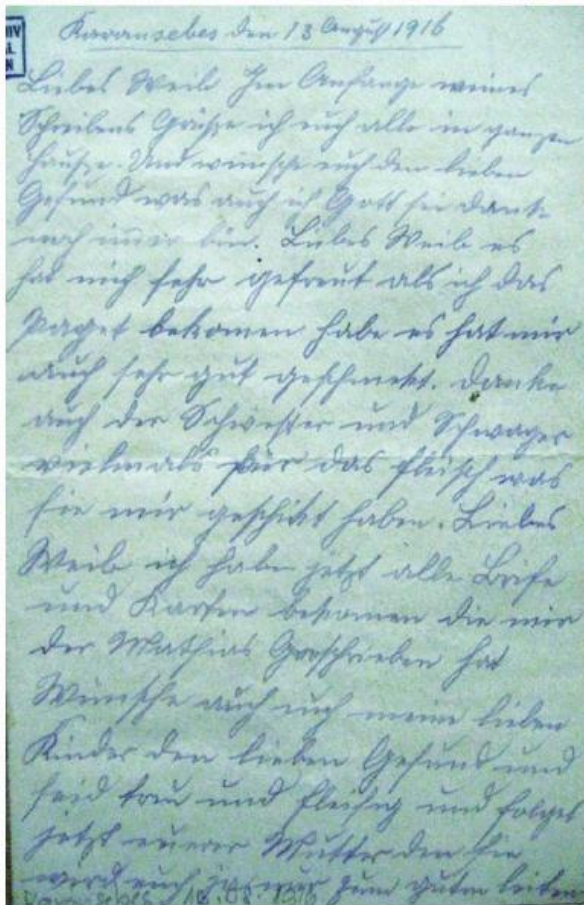 Karansebes den 13 August 1916
Liebes Weib Im Anfange meines
Schreibens Grüße ich euch alle in ganzen
Hauße. Und wünsche euch den lieben
Gesund was auch ich Gott sei dank
noch immer bin. Liebes Weib es
hat mich sehr gefreut als ich das
Paget bekomen habe es hat mir
auch sehr gut geschmekt. Danke
auch der Schwester und Schwager
vielmals für das fleisch was
sie mir geschikt haben. Liebes
Weib ich habe jetzt alle Brife
und Karten bekomen die mir
der Mathias Geschrieben hat
Wünsche auch euch meine lieben
Kinder den lieben Gesund und
seid treu und fleisig und folget
jetzt eurer Mutter den sie
wird euch ja nur zum guten leiten
Karansebes 13. 08. 1916